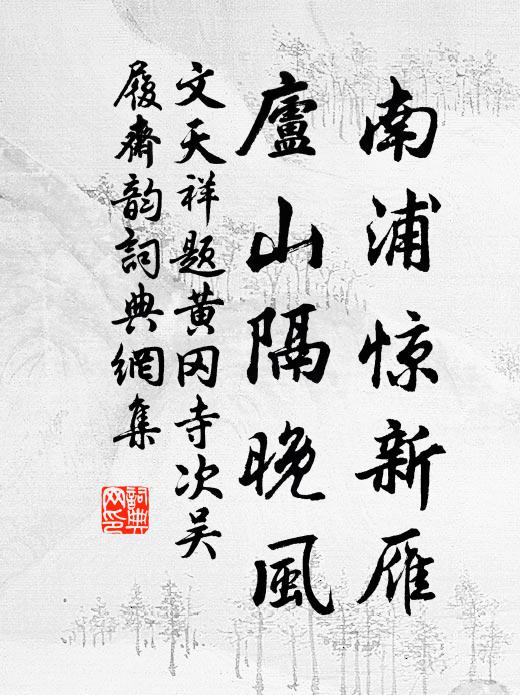 南浦惊新雁
廬山隔晚風
文天祥题黄冈寺次吴
履齋韵詞典網集
詞典
网印